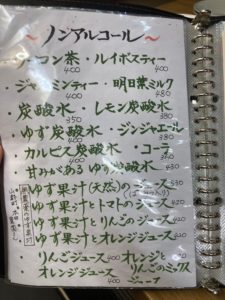 ～ノンアルコール～
・ウーコン茶 ・ルイボスティー
400 400
・ジャスミンティー ・明日葉ミルク
400 480
・炭酸水 ・レモン炭酸水
350 380
・ゆず炭酸水 ・ジンジャエール
400 380
・カルピス炭酸水 ・コーラ
400
・甘みがある ゆず炭酸水
430
・ゆず果汁(天然)のジュース 530
・ゆず果汁とトマトのジュース 420
・ゆず果汁とりんごのジュース 400
・ゆず果汁とオレンジジュース 400
・りんごジュース 400 ・オレンジと
・オレンジジュース 400 りんごのミックスジュース